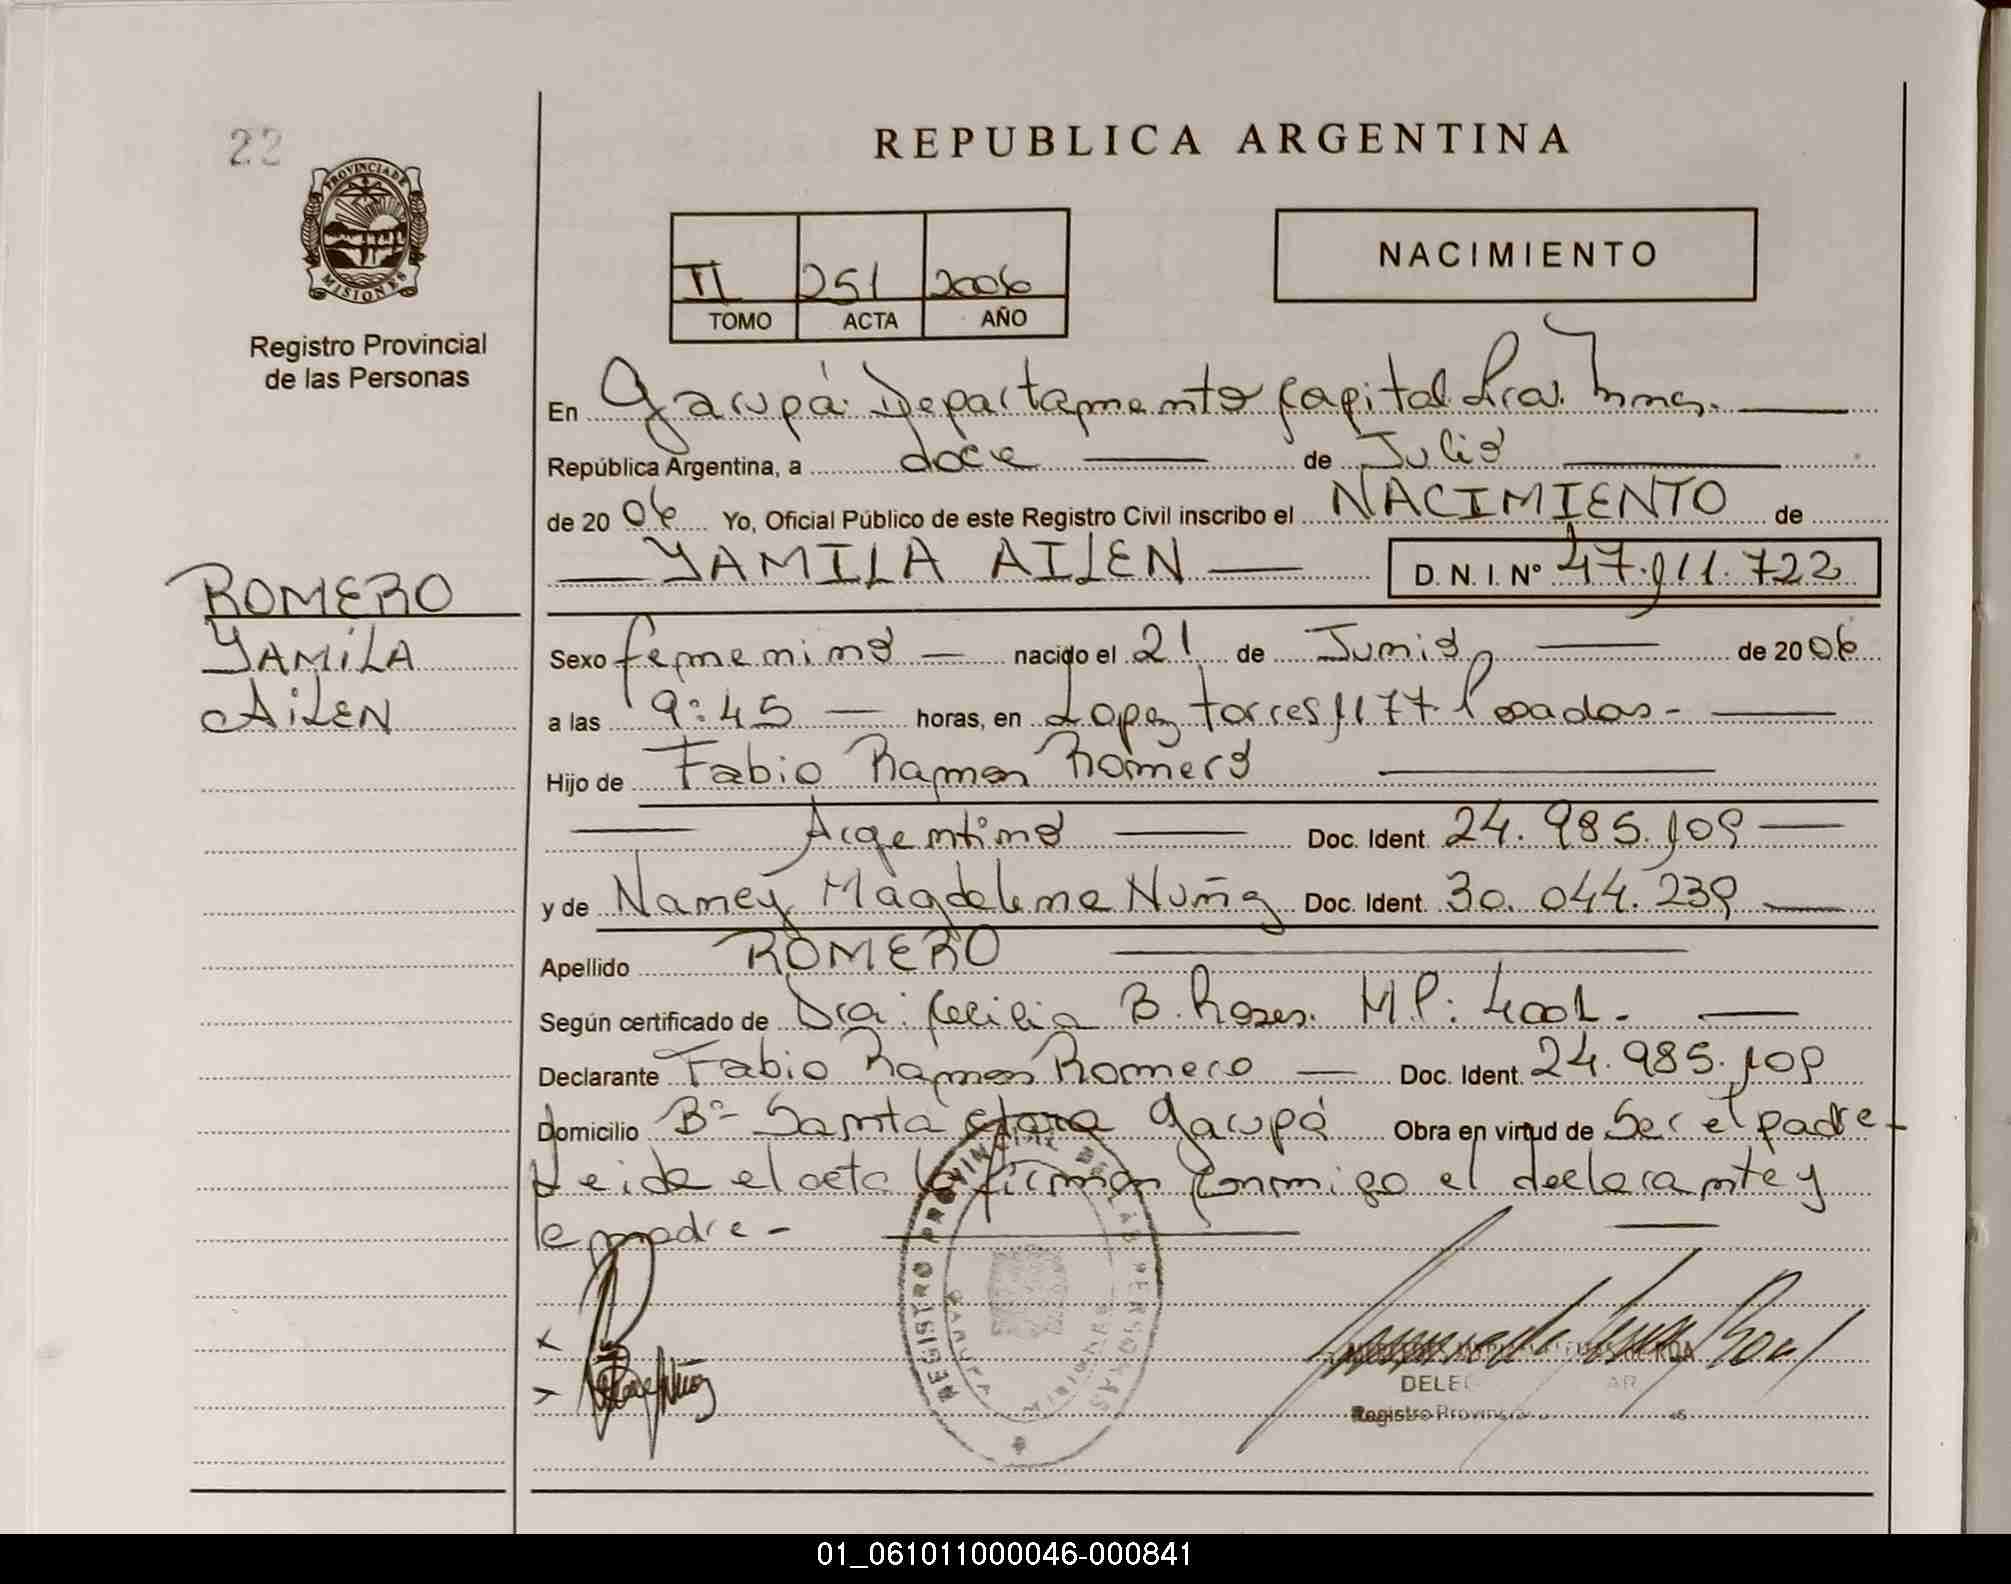 22
PROVINCIA DE
MISIONES
Registro Provincial
de las Personas
REPUBLICA ARGENTINA
II 251 2006
TOMO ACTA AÑO
NACIMIENTO
En Garupá Departamento Capital Pcia. Mnes.
República Argentina, a doce de Julio
de 2006 Yo, Oficial Público de este Registro Civil inscribo el NACIMIENTO de
YAMILA AILEN D.N.I. Nº 47.011.722
ROMERO
YAMILA
AILEN
Sexo femenino nacido el 21 de Junio de 2006
a las 9:45 horas, en Lopez torres 1177 Posadas-
Hijo de Fabio Ramon Romero
Argentino Doc. Ident. 24.985.109
y de Nancy Magdalena Nuñez Doc. Ident. 30.044.239
Apellido ROMERO
Según certificado de Dra: Cecilia B. Roses. M.P: 4001-
Declarante Fabio Ramon Romero Doc. Ident. 24.985.109
Domicilio Bº- Santa Clara Garupá Obra en virtud de Ser el padre-
Leida el acta la firman conmigo el declarante y
la madre-
REGISTRO PROVINCIAL DE LAS PERSONAS
GARUPA
MISIONES
Registro Provincial
01_061011000046-000841